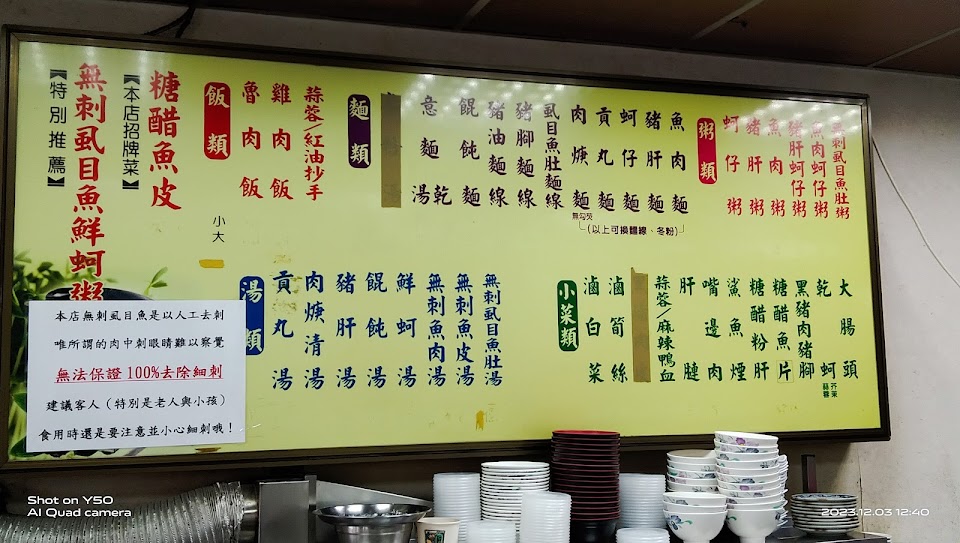 【特別推薦】
無刺虱目魚鮮蚵粥
【本店招牌菜】
糖醋魚皮
飯類
魯肉飯
雞肉飯
蒜蓉/紅油抄手
小大
麵類
意麵湯
乾
餛飩麵
豬油麵線
豬腳麵線
虱目魚肚麵線
肉焿麵
無勾芡
貢丸麵
蚵仔麵
豬肝麵
魚肉麵
(以上可換麵線、冬粉)
粥類
蚵仔粥
豬肝粥
魚肉粥
豬肝蚵仔粥
魚肉蚵仔粥
無刺虱目魚肚粥
湯類
貢丸湯
肉焿清湯
豬肝湯
餛飩湯
鮮蚵湯
無刺魚肉湯
無刺魚皮湯
無刺虱目魚肚湯
小菜類
滷白菜
滷筍絲
蒜蓉/麻辣鴨血
肝腱
嘴邊肉
鯊魚煙
糖醋粉肝
糖醋魚片
黑豬肉豬腳
乾蚵
蒜蓉
芥茉
大腸頭
本店無刺虱目魚是以人工去刺
唯所謂的肉中刺眼睛難以察覺
無法保證100%去除細刺
建議客人(特別是老人與小孩)
食用時還是要注意並小心細刺哦!
Shot on Y50
AI Quad camera
2023.12.03 12:40